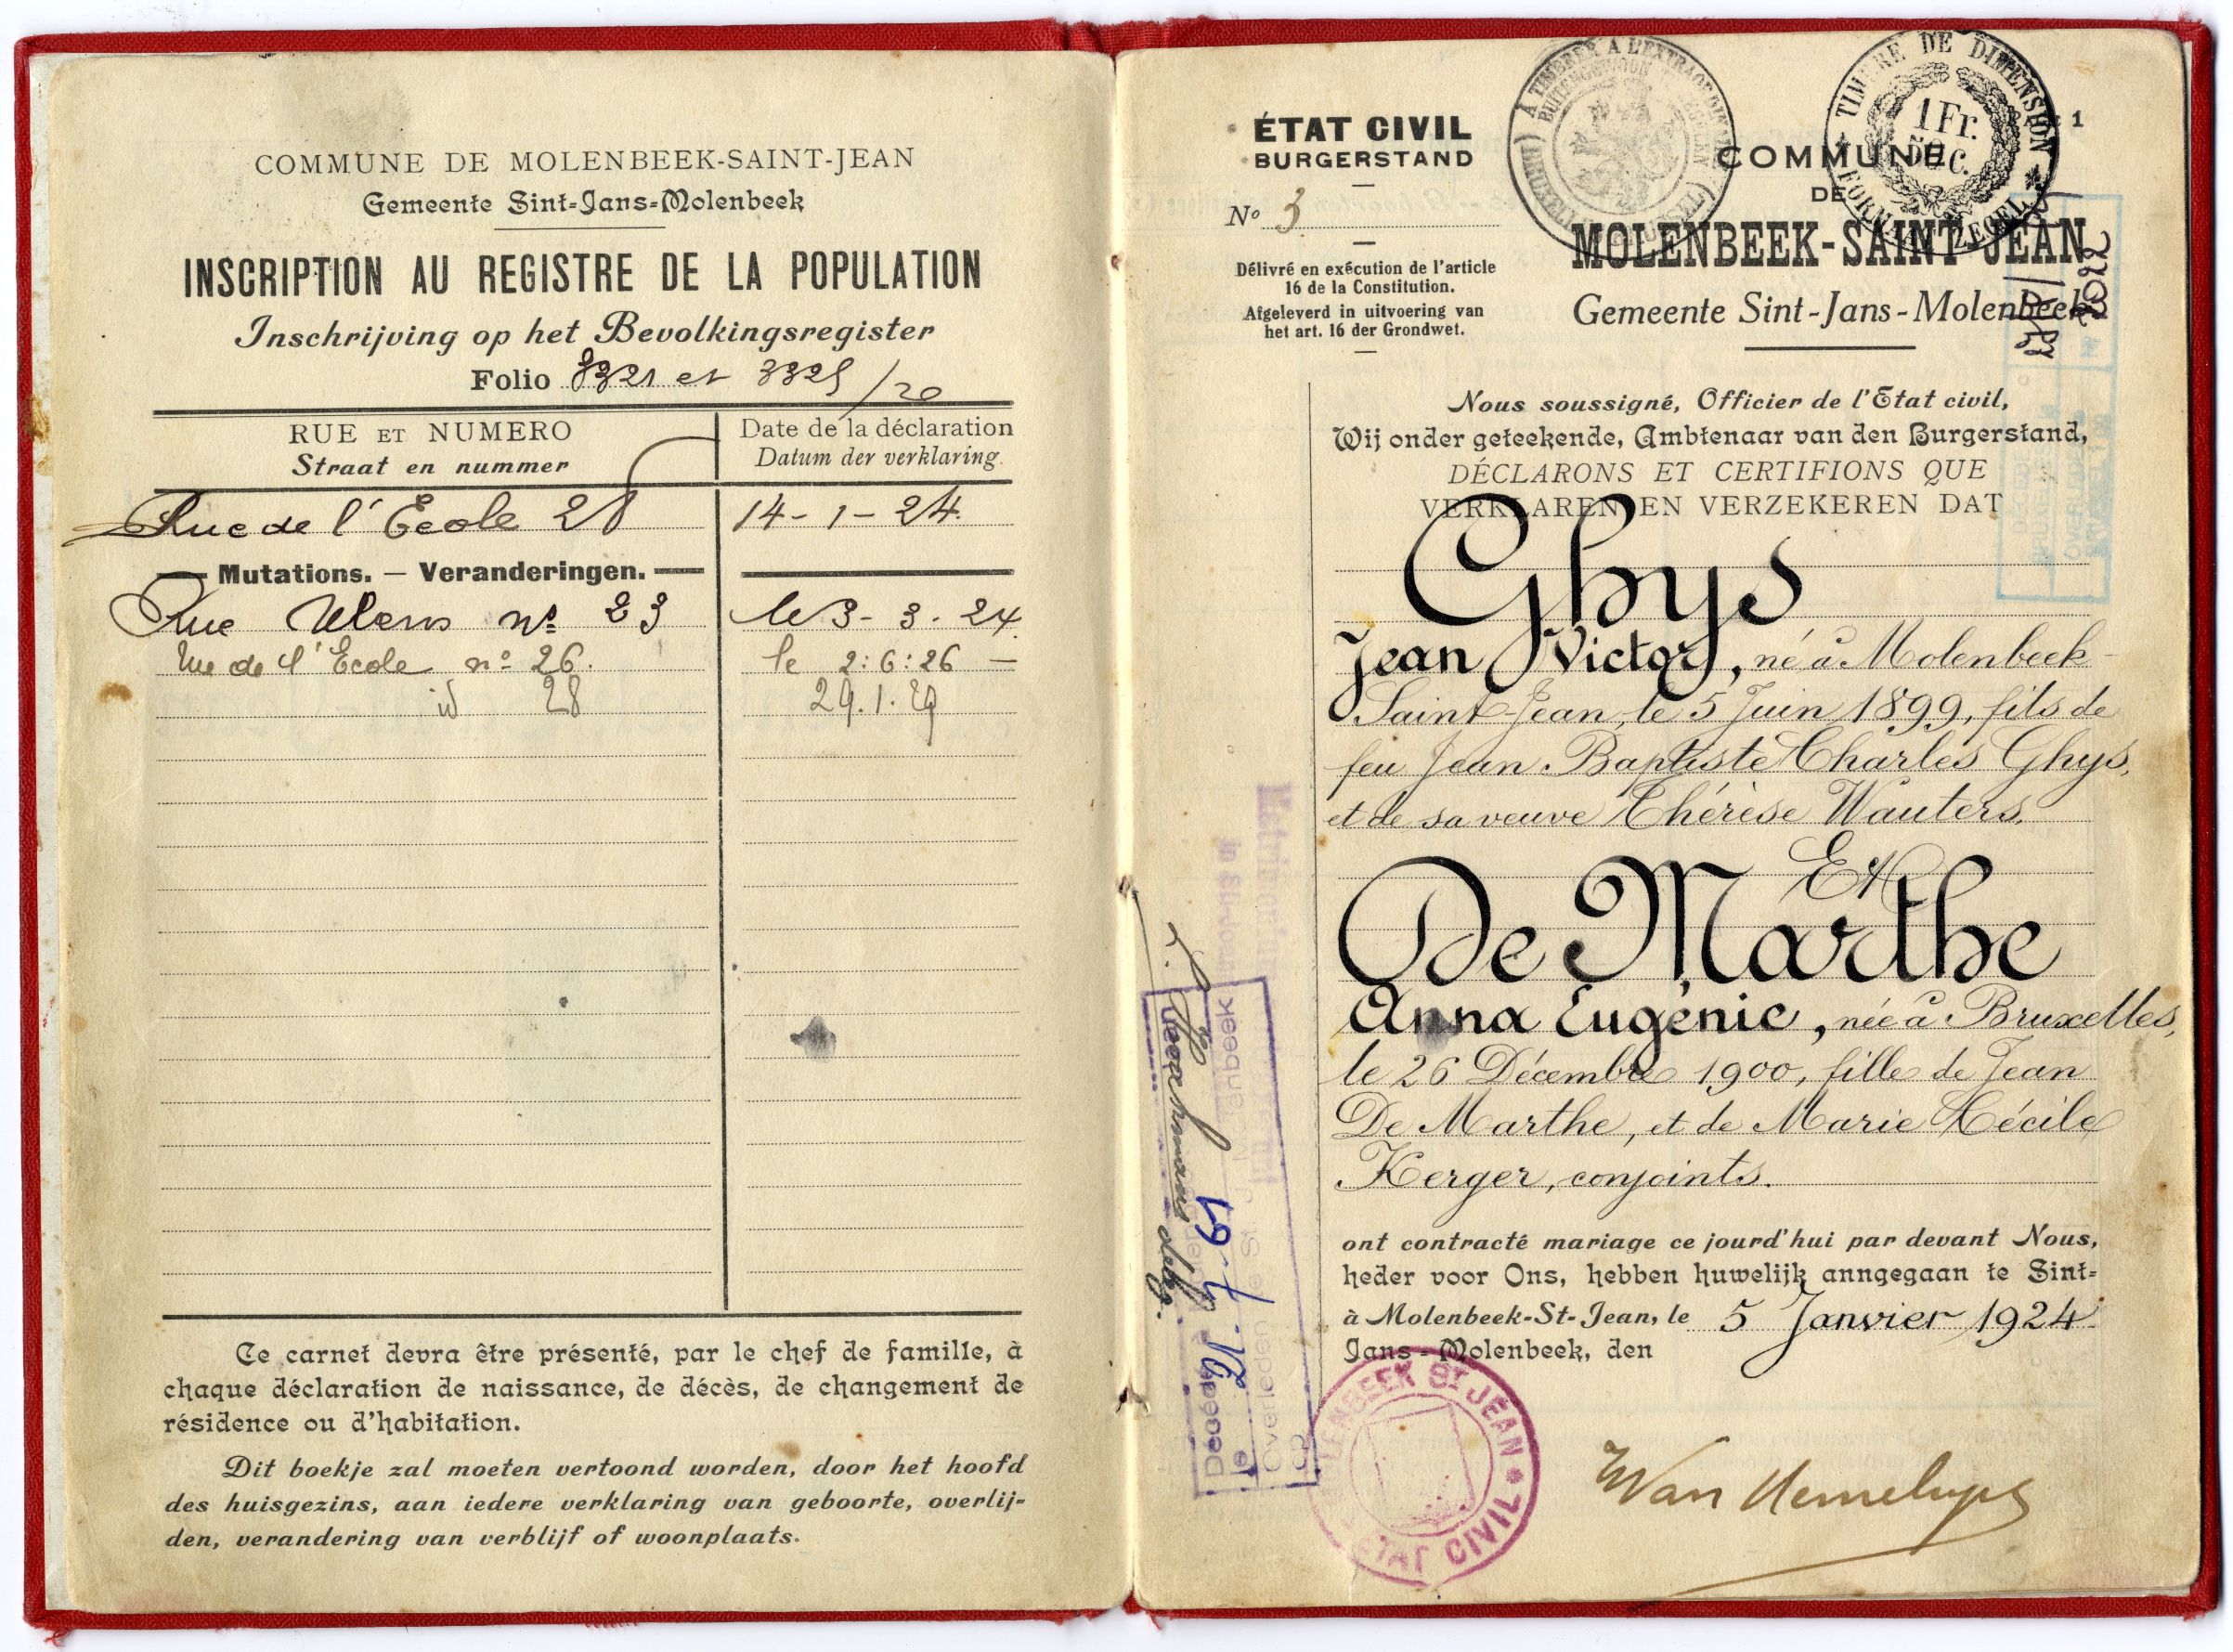 COMMUNE DE MOLENBEEK-SAINT-JEAN
Gemeente Sint-Jans-Molenbeek
INSCRIPTION AU REGISTRE DE LA POPULATION
Inschrijving op het Bevolkingsregister
Folio 3321 et 3325/20
RUE ET NUMERO
Straat en nummer
Date de la déclaration
Datum der verklaring.
Rue de l'Ecole 28 14-1-24.
Mutations. — Veranderingen.
Rue Ulens nº 23 le 3-3.24
Rue de l'Ecole nº 26. le 2:6:26 —
id 28 29.1.29
Ce carnet devra être présenté, par le chef de famille, à
chaque déclaration de naissance, de décès, de changement de
résidence ou d'habitation.
Dit boekje zal moeten vertoond worden, door het hoofd
des huisgezins, aan iedere verklaring van geboorte, overlij-
den, verandering van verblijf of woonplaats.
ÉTAT CIVIL
BURGERSTAND
Nº 3
Délivré en exécution de l'article
16 de la Constitution.
Afgeleverd in uitvoering van
het art. 16 der Grondwet.
A TIMBRER A L'EXTRAORDINAIRE
TIMBRE DE DIMENSION
1 Fr.
50 C.
FORMAAT ZEGEL
1
COMMUNE
DE
MOLENBEEK-SAINT-JEAN
Gemeente Sint-Jans-Molenbeek
Nous soussigné, Officier de l'Etat civil,
Wij onder geteekende, Ambtenaar van den Burgerstand,
DÉCLARONS ET CERTIFIONS QUE
VERKLAREN EN VERZEKEREN DAT
Ghys
Jean Victor, né à Molenbeek-
Saint-Jean, le 5 Juin 1899, fils de
feu Jean Baptiste Charles Ghys,
et de sa veuve Thérèse Wauters.
Et
De Marthe
Anna Eugénie, née à Bruxelles,
le 26 Décembre 1900, fille de Jean
De Marthe, et de Marie Cécile
Kerger, conjoints.
ont contracté mariage ce jourd'hui par devant Nous,
heder voor Ons, hebben huwelijk anngegaan te Sint-
à Molenbeek-St-Jean, le 5 Janvier 1924.
Jans-Molenbeek, den
MOLENBEEK ST JEAN
ETAT CIVIL
Décédé
le 21-7-61
Overleden